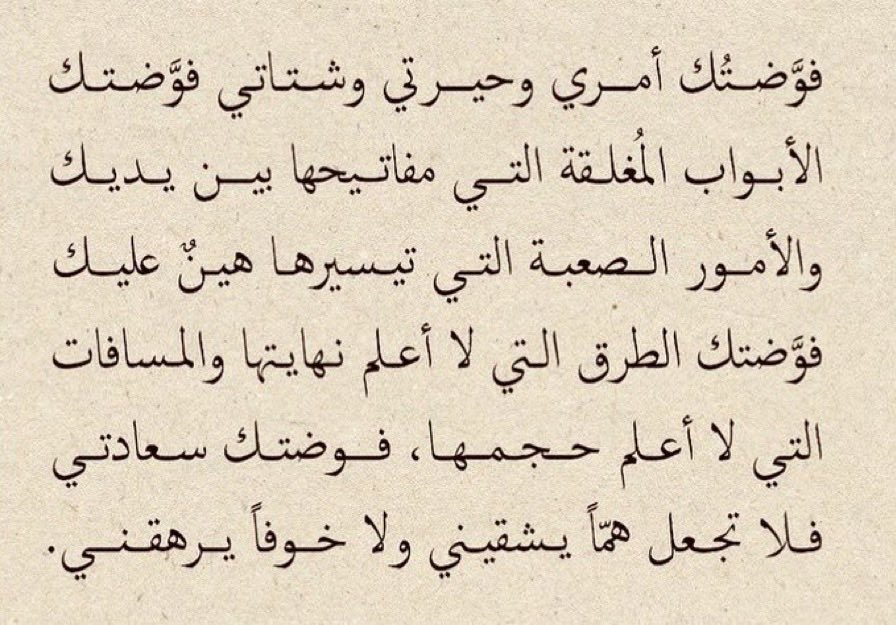 فوَّضتُك أمري وحيرتي وشتاتي فوَّضتك
الأبواب المُغلقة التي مفاتيحها بين يديك
والأمور الصعبة التي تيسيرها هينٌ عليك
فوَّضتك الطرق التي لا أعلم نهايتها والمسافات
التي لا أعلم حجمها، فوضتك سعادتي
فلا تجعل همّاً يشقيني ولا خوفاً يرهقني.